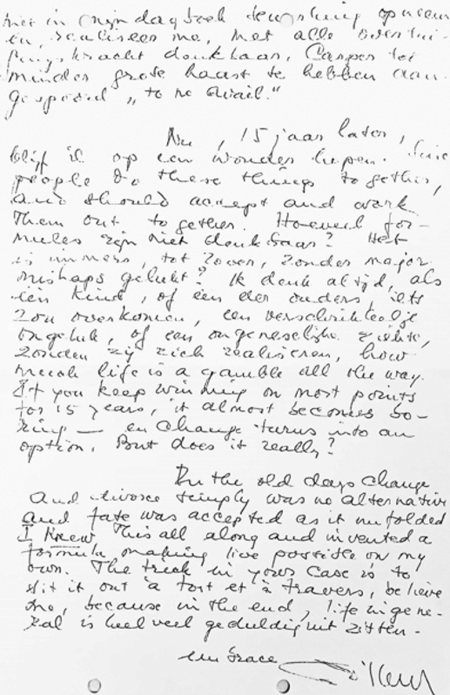 niet in mijn dagboek
en, realiseer me, met alle overtui-
gingskracht denkbaar, Casper tot
minder grote haast te hebben aan-
gespoord „to no avail."
Nu, 15 jaar later,
blijf ik op een wonder hopen.
people do these things together,
and should accept and work
them out together. Hoeveel for-
mules zijn niet denkbaar? Het
is immers, tot zover, zonder major
mishaps gelukt? Ik denk altijd, als
één kind, of één der ouders, iets
zou overkomen, een verschrikkelijk
ongeluk, of een ongeneeslijke ziekte,
zouden zij zich realiseren, how
much life is a gamble all the way.
If you keep winning on most points
for 15 years, it almost becomes bo-
ring — en change turns into an
option. But does it really?
In the old days change
and divorce simply was no alternative
and fate was accepted as it unfolded
I knew this all along and invented a
formula, making live possible on my
own. The trick in yours case is to
sit it out à tort et à travers, believe
me, because in the end, life in gene-
ral is heel veel geduldig uit zitten.